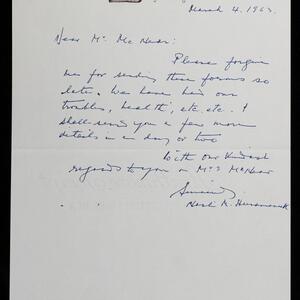 March 4, 1963.
Dear Mr. McNear:
Please forgive
me for sending these forms so
late. We have had our
troubles, health, etc. etc. I
shall send you a few more
details in a day or two
With our kindest
regards to you & Mrs McNear
Sincerely
M.